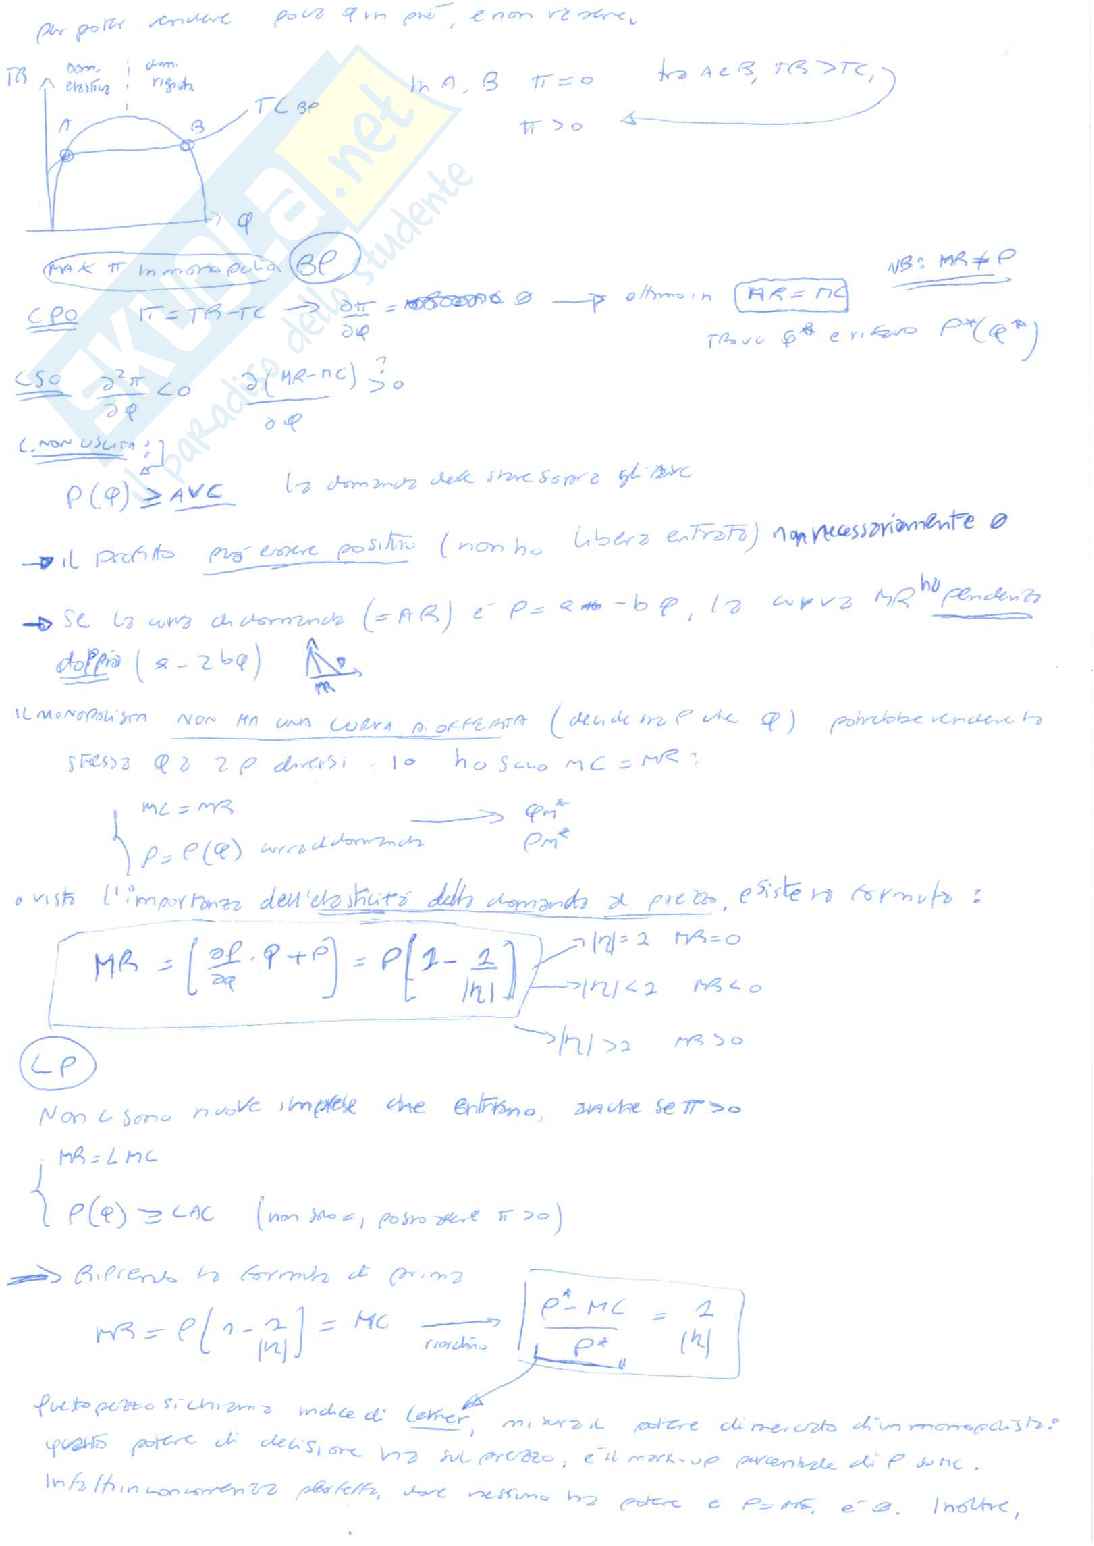 per poter vendere poca Q in più, e non va bene.
TR
dom. elastica
dom. rigida
A
B
TC BP
Q
In A, B π=0 tra A e B, TR>TC,
π>0
MAX π in monopolio BP
NB: MR≠P
CPO π=TR-TC → ∂π/∂Q = 0 → ottimo in MR=MC
trovo Q* e ricavo P*(Q*)
CSO ∂²π/∂Q <0 ∂(MR-MC)/∂Q >0 ?
C. NON USCITA:
P(Q) ≥ AVC la domanda deve stare sopra gli AVC
→ il profitto può essere positivo (non ho libera entrata) non necessariamente 0
→ Se la curva di domanda (=AR) è P=a-bQ, la curva MR ha pendenza
doppia (a-2bQ)
MR
IL MONOPOLISTA NON HA UNA CURVA D'OFFERTA (decide sia P che Q) potrebbe vendere la
stessa Q a 2 P diversi. Io ho solo MC=MR:
MC=MR → Qm*
P=P(Q) curva di domanda Pm*
• vista l'importanza dell'elasticità della domanda al prezzo, esiste la formula:
MR = [∂P/∂Q · Q + P] = P[1 - 1/|η|]
→ |η|=1 MR=0
→ |η|<1 MR<0
→ |η|>1 MR>0
LP
Non ci sono nuove imprese che entrano, anche se π>0
MR=LMC
P(Q) ≥ LAC (non solo =, posso avere π>0)
→ Riprendo la formula di prima
MR = P[1 - 1/|η|] = MC → P*-MC/P* = 1/|η|
Questo pezzo si chiama indice di Lerner, misura il potere di mercato di un monopolista:
quanto potere di decisione ha sul prezzo, è il mark-up percentuale di P su MC.
Infatti in concorrenza perfetta, dove nessuno ha potere e P=MC, è 0. Inoltre,
SKUOLA.net
il paradiso dello studente